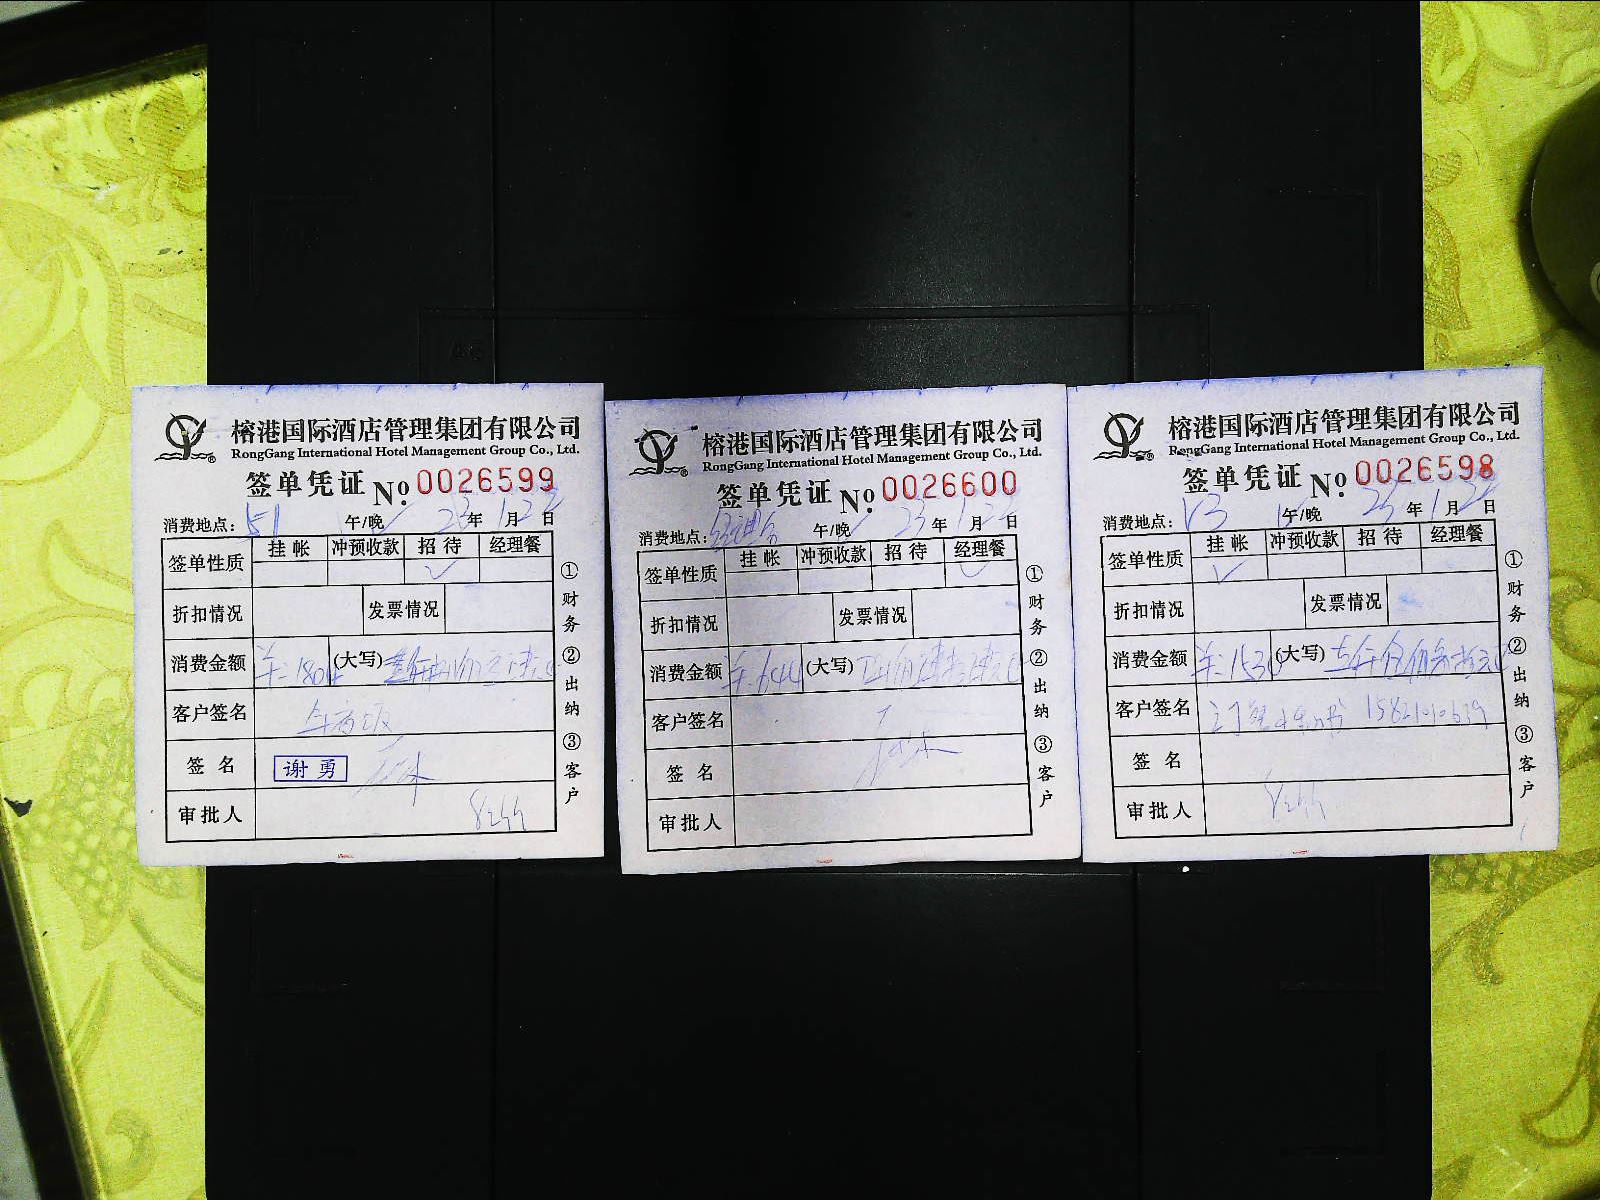 榕港国际酒店管理集团有限公司
RongGang International Hotel Management Group Co., Ltd.
签单凭证 No. 0026599
消费地点: 午/晚 23年1月22日
签单性质 挂帐 冲预收款 招待 经理餐
折扣情况 发票情况
消费金额 (大写)
客户签名
签名 谢勇
审批人
①财务 ②出纳 ③客户
榕港国际酒店管理集团有限公司
RongGang International Hotel Management Group Co., Ltd.
签单凭证 No. 0026600
消费地点: 午/晚 23年1月22日
签单性质 挂帐 冲预收款 招待 经理餐
折扣情况 发票情况
消费金额 (大写)
客户签名
签名
审批人
①财务 ②出纳 ③客户
榕港国际酒店管理集团有限公司
RongGang International Hotel Management Group Co., Ltd.
签单凭证 No. 0026598
消费地点: V3 午/晚 23年1月22日
签单性质 挂帐 冲预收款 招待 经理餐
折扣情况 发票情况
消费金额 (大写)
客户签名
签名
审批人
①财务 ②出纳 ③客户